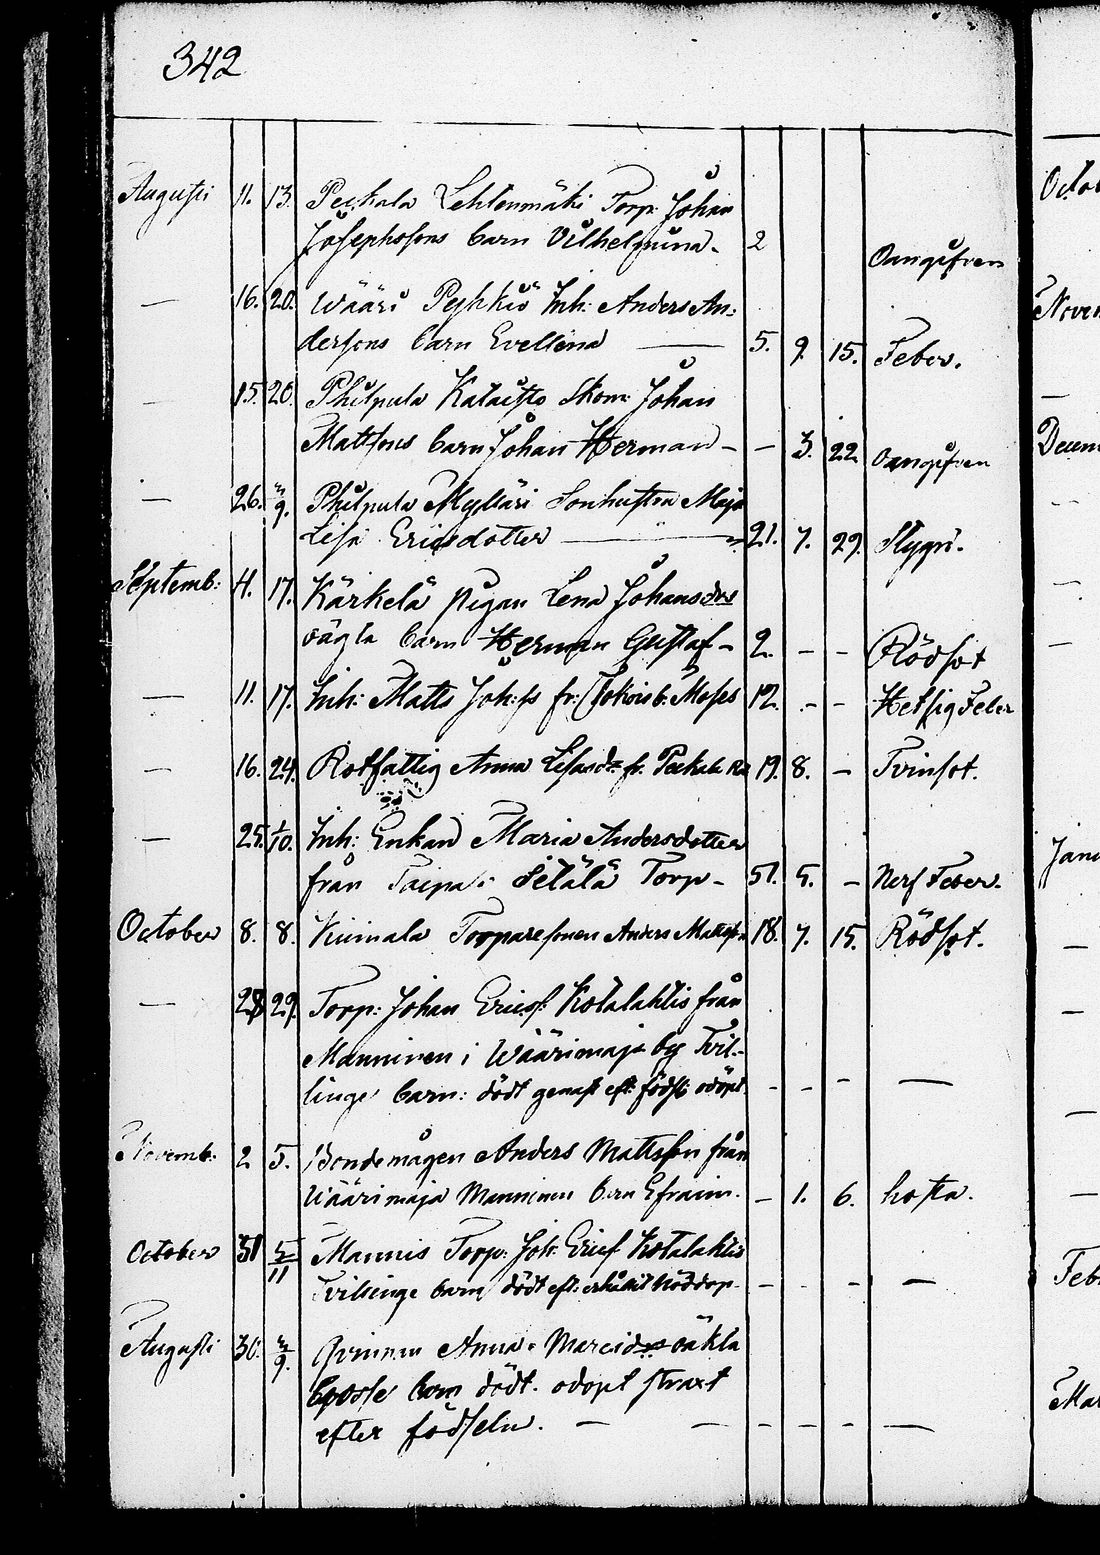 342
Augusti 11. 13. Peckala Lehtenmäki Torp: Johan
Josephsons barn Vilhelmina. 2 Oangifven
— 16. 20. Wääri Anders An:
dersons barn Evelina — 5. 9. 15. Feber.
— 15. 20. Philpula Kataisto Skom: Johan
Mattsons barn Johan Herman - - 3. 22. Oangifven
— 26. 9. Philpula Mylläri Sonhustru Maja
Lisa Ericsdotter — 21. 7. 29. Stygn.
Septemb: 4. 17. Kärkelä pigan Lena Johansdrs
oägta barn Herman Gustaf - 2. - - Rödsot
— 11. 17. Inh: Matts Joh:ss fr: Jokois b: Moses 12. - - Hetsig Feber
— 16. 24. Rotfattig Anna Lisasdr fr. Peckala 19. 8. - Tvinsot.
— 25. 1/10. Inh: Enkan Maria Andersdotter
från Taipale Setälä Torp - 51. 5. - Nerf Feber.
October 8. 8. Kiimala Torparesonen Anders Mattss:n 18. 7. 15. Rödsot.
— 28 29. Torp: Johan Ericss: Kotalahtis från
Manninen i Wäärimaja by Tvil-
linge barn: dödt genast eft: föds: odöpt. - - - —
Novemb: 2 5. Bondemågen Anders Mattsson från
Wäärimaja Manninen barn Efraim. - 1. 6. hosta.
October 31 5/11 Mannis Torp: Joh: Ericss Kotalahtis
Tvillinge barn dödt eft: erhållit Nöddop - - - —
Augusti 30. 9. Qvinnan Anna Marcidr oäkta
barn dödt. odöpt straxt
efter födseln. — — - - - —
Octo
Novem
—
Decem
—
—
—
Janu
—
—
—
—
Feb
Mar